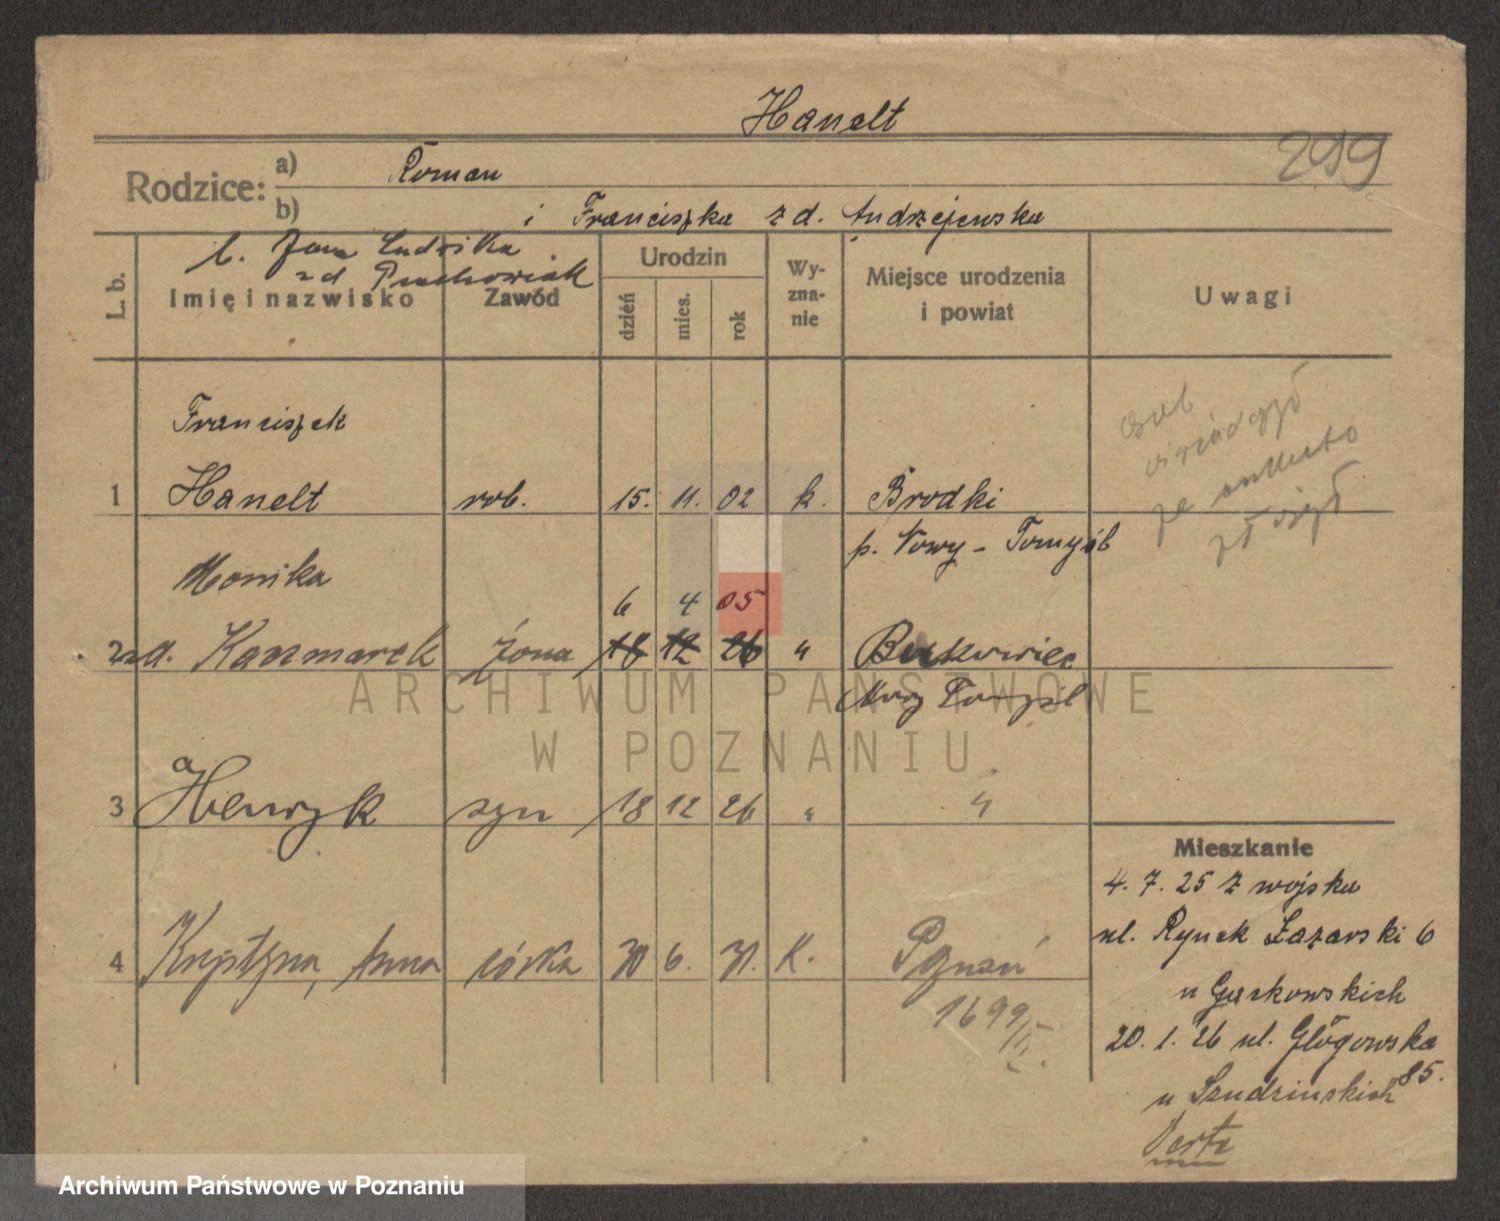 Hanelt
299
Rodzice:
a) Roman
b) i Franciszka z d. Andrzejewska
b. Jan Ludwika
zd
L. b.
Imię i nazwisko
Zawód
Urodzin
dzień
mies.
rok
Wy-
zna-
nie
Miejsce urodzenia
i powiat
Uwagi
Franciszek
1 Hanelt rob. 15. 11. 02 k. Brodki
p. Nowy - Tomyśl
Monika
6 4 05
2 zd. Kaczmarek żona 18 12 26 " Bukowiec
Nowy Tomyśl
ARCHIWUM PAŃSTWOWE
W POZNANIU
3 a Henryk syn 18 12 26 " "
Mieszkanie
4. 7. 25 z wojska
ul. Rynek Łazarski 6
u Gackowskich
20. 1. 26 ul. Głogowska
85.
u Szudzinskich
Verte
4 Krystyna, Anna córka 30 6. 31. K. Poznań
1699/II.
Archiwum Państwowe w Poznaniu